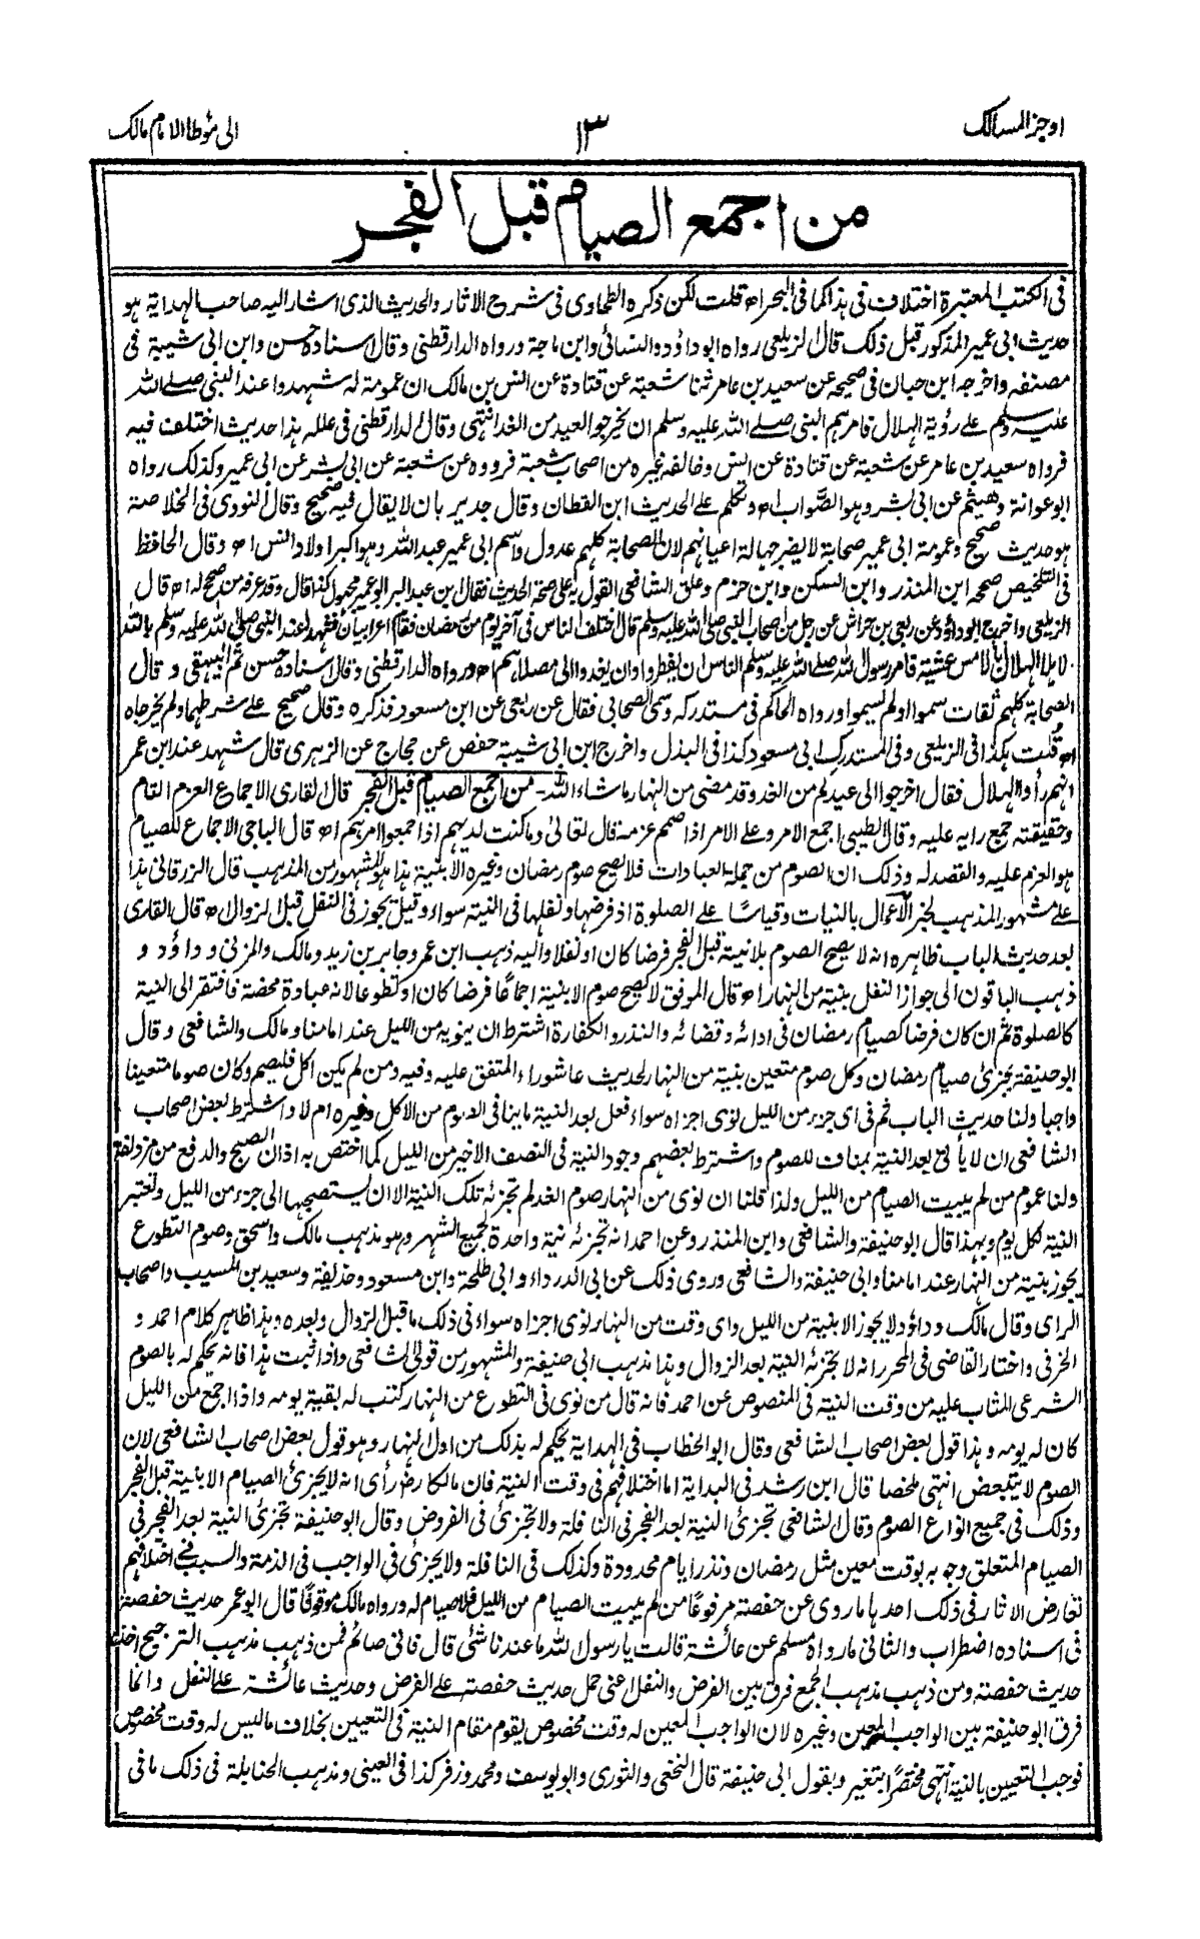 اوجز المسالك
١٣
الى مؤطا الامام مالك
من اجمع الصيام قبل الفجر
فى الكتب المعتبرة اختلاف فى هذا كما فى البحر اھ قلت لكن ذكره الطحاوى فى شرح الاثار والحديث الذى اشار اليه صاحب الهداية هو
حديث ابى عمير المذكور قبل ذلك قال الزيلعى رواه ابو داؤد والنسائى وابن ماجة ورواه الدارقطنى وقال اسناده حسن وابن ابى شيبة فى
مصنفه واخرجه ابن حبان فى صحيحه عن سعيد بن عامر ثنا شعبة عن قتادة عن انس بن مالك ان عمومة له شهدوا عند النبى صلى الله
عليه وسلم على رؤية الهلال فامرهم النبى صلى الله عليه وسلم ان يخرجوا لعيد من الغد انتهى وقال الدارقطنى فى علله هذا حديث اختلف فيه
فرواه سعيد بن عامر عن شعبة عن قتادة عن انس وخالفه غيره من اصحاب شعبة فرووه عن شعبة عن ابى بشر عن ابى عمير وكذلك رواه
ابو عوانة وهشيم عن ابى بشر وهو الصواب اھ وتكلم على الحديث ابن القطان وقال جدير بان لا يقال فيه صحيح وقال النووى فى الخلاصة
هو حديث صحيح وعمومة ابى عمير صحابة لا يضر جهالة اعيانهم لان الصحابة كلهم عدول واسم ابى عمير عبد الله وهو اكبر اولاد انس اھ وقال الحافظ
فى التلخيص صححه ابن المنذر وابن السكن وابن حزم وعلق الشافعى القول به على صحة الحديث فقال ابن عبد البر ابو عمير مجهول كذا قال وقد عرفه من صحح له اھ قال
الزيلعى واخرج ابو داؤد عن ربعى بن حراش عن رجل من اصحاب النبى صلى الله عليه وسلم قال اختلف الناس فى آخر يوم من رمضان فقام اعرابيان فشهدا عند النبى صلى الله عليه وسلم بالله
لاهلا الهلال بالامس عشية فامر رسول الله صلى الله عليه وسلم الناس ان يفطروا وان يغدوا الى مصلاهم اھ ورواه الدارقطنى وقال اسناده حسن ثم البيهقى وقال
الصحابة كلهم ثقات سموا او لم يسموا ورواه الحاكم فى مستدركه وسمى الصحابى فقال عن ربعى عن ابن مسعود فذكره وقال صحيح على شرطهما ولم يخرجاه
اھ قلت هكذا فى الزيلعى وفى المستدرك ابى مسعود كذا فى البذل واخرج ابن ابى شيبة حفص عن حجاج عن الزهرى قال شهد عند ابن عمر
انهم رأوا الهلال فقال اخرجوا الى عيدكم من الغد وقد مضى من النهار ما شاء الله - من اجمع الصيام قبل الفجر قال القارى الاجماع العزم التام
وحقيقته جمع رايه عليه وقال الطيبى اجمع الامر وعلى الامر اذا صمم عزمه قال تعالى وما كنت لديهم اذ اجمعوا امرهم اھ قال الباجى الاجماع للصيام
هو العزم عليه والقصد له وذلك ان الصوم من جملة العبادات فلا يصح صوم رمضان وغيره الا بنية هذا هو المشهور من المذهب قال الزرقانى هذا
على مشهور المذهب لخبر الاعمال بالنيات وقياسا على الصلوة اذ فرضها ونفلها فى النية سواء وقيل يجوز فى النفل قبل الزوال اھ قال القارى
بعد حديث الباب ظاهره انه لا يصح الصوم بلا نية قبل الفجر فرضا كان او نفلا واليه ذهب ابن عمر وجابر بن زيد ومالك والمزنى وداؤد و
ذهب الباقون الى جواز النفل بنية من النهار اھ قال الموفق لا يصح صوم الا بنية اجماعًا فرضا كان او تطوعا لانه عبادة محضة فافتقر الى النية
كالصلوة ثم ان كان فرضا كصيام رمضان فى ادائه وقضائه والنذر والكفارة اشترط ان ينويه من الليل عند امامنا ومالك والشافعى وقال
ابو حنيفة يجزئ صيام رمضان وكل صوم متعين بنية من النهار لحديث عاشوراء المتفق عليه وفيه ومن لم يكن اكل فليصم وكان صوما متعينا
واجبا ولنا حديث الباب ثم فى اى جزء من الليل نوى اجزاه سواء فعل بعد النية ما ينافى الصوم من الاكل وغيره ام لا واشترط بعض اصحاب
الشافعى ان لا يأتى بعد النية بمناف للصوم واشترط بعضهم وجود النية فى النصف الاخير من الليل كما اختص به اذان الصبح والدفع من مزدلفة
ولنا عموم من لم يبيت الصيام من الليل ولذا قلنا ان نوى من النهار صوم الغد لم تجزئه تلك النية الا ان يستصحبها الى جزء من الليل وتعتبر
النية لكل يوم وبهذا قال ابو حنيفة والشافعى وابن المنذر وعن احمد انه تجزئه نية واحدة لجميع الشهر وهو مذهب مالك واسحق وصوم التطوع
يجوز بنية من النهار عند امامنا وابى حنيفة والشافعى وروى ذلك عن ابى الدرداء وابى طلحة وابن مسعود وحذيفة وسعيد بن المسيب واصحاب
الراى وقال مالك وداؤد لا يجوز الا بنية من الليل واى وقت من النهار نوى اجزاه سواء فى ذلك ما قبل الزوال وبعده وهذا ظاهر كلام احمد و
الخرقى واختار القاضى فى المحرر انه لا تجزئه النية بعد الزوال وهذا مذهب ابى حنيفة والمشهور من قولى الشافعى واذا ثبت هذا فانه يحكم له بالصوم
الشرعى المثاب عليه من وقت النية فى المنصوص عن احمد فانه قال من نوى فى التطوع من النهار كتب له بقية يومه واذا اجمع من الليل
كان له يومه وهذا قول بعض اصحاب الشافعى وقال ابو الخطاب فى الهداية يحكم له بذلك من اول النهار وهو قول بعض اصحاب الشافعى لان
الصوم لا يتبعض انتهى ملخصا قال ابن رشد فى البداية اما اختلافهم فى وقت النية فان مالكا رضى رأى انه لا يجزئ الصيام الا بنية قبل الفجر
وذلك فى جميع انواع الصوم وقال الشافعى تجزئ النية بعد الفجر فى النافلة ولا تجزئ فى الفروض وقال ابو حنيفة تجزئ النية بعد الفجر فى
الصيام المتعلق وجوبه بوقت معين مثل رمضان ونذر ايام محدودة وكذلك فى النافلة ولا يجزئ فى الواجب فى الذمة والسبب فى اختلافهم
تعارض الاثار فى ذلك احدها ما روى عن حفصة مرفوعًا من لم يبيت الصيام من الليل فلا صيام له ورواه مالك موقوفًا قال ابو عمر حديث حفصة
فى اسناده اضطراب والثانى ما رواه مسلم عن عائشة قالت يا رسول الله ما عندنا شئ قال فانى صائم فمن ذهب مذهب الترجيح اخذ
حديث حفصة ومن ذهب مذهب الجمع فرق بين الفرض والنفل اعنى حمل حديث حفصة على الفرض وحديث عائشة على النفل وانما
فرق ابو حنيفة بين الواجب المعين وغيره لان الواجب المعين له وقت مخصوص يقوم مقام النية فى التعيين بخلاف ما ليس له وقت مخصوص
فوجب التعيين بالنية انتهى مختصرًا بتغير وبقول ابى حنيفة قال النخعى والثورى وابو يوسف ومحمد وزفر كذا فى العينى ومذهب الحنابلة فى ذلك ما فى